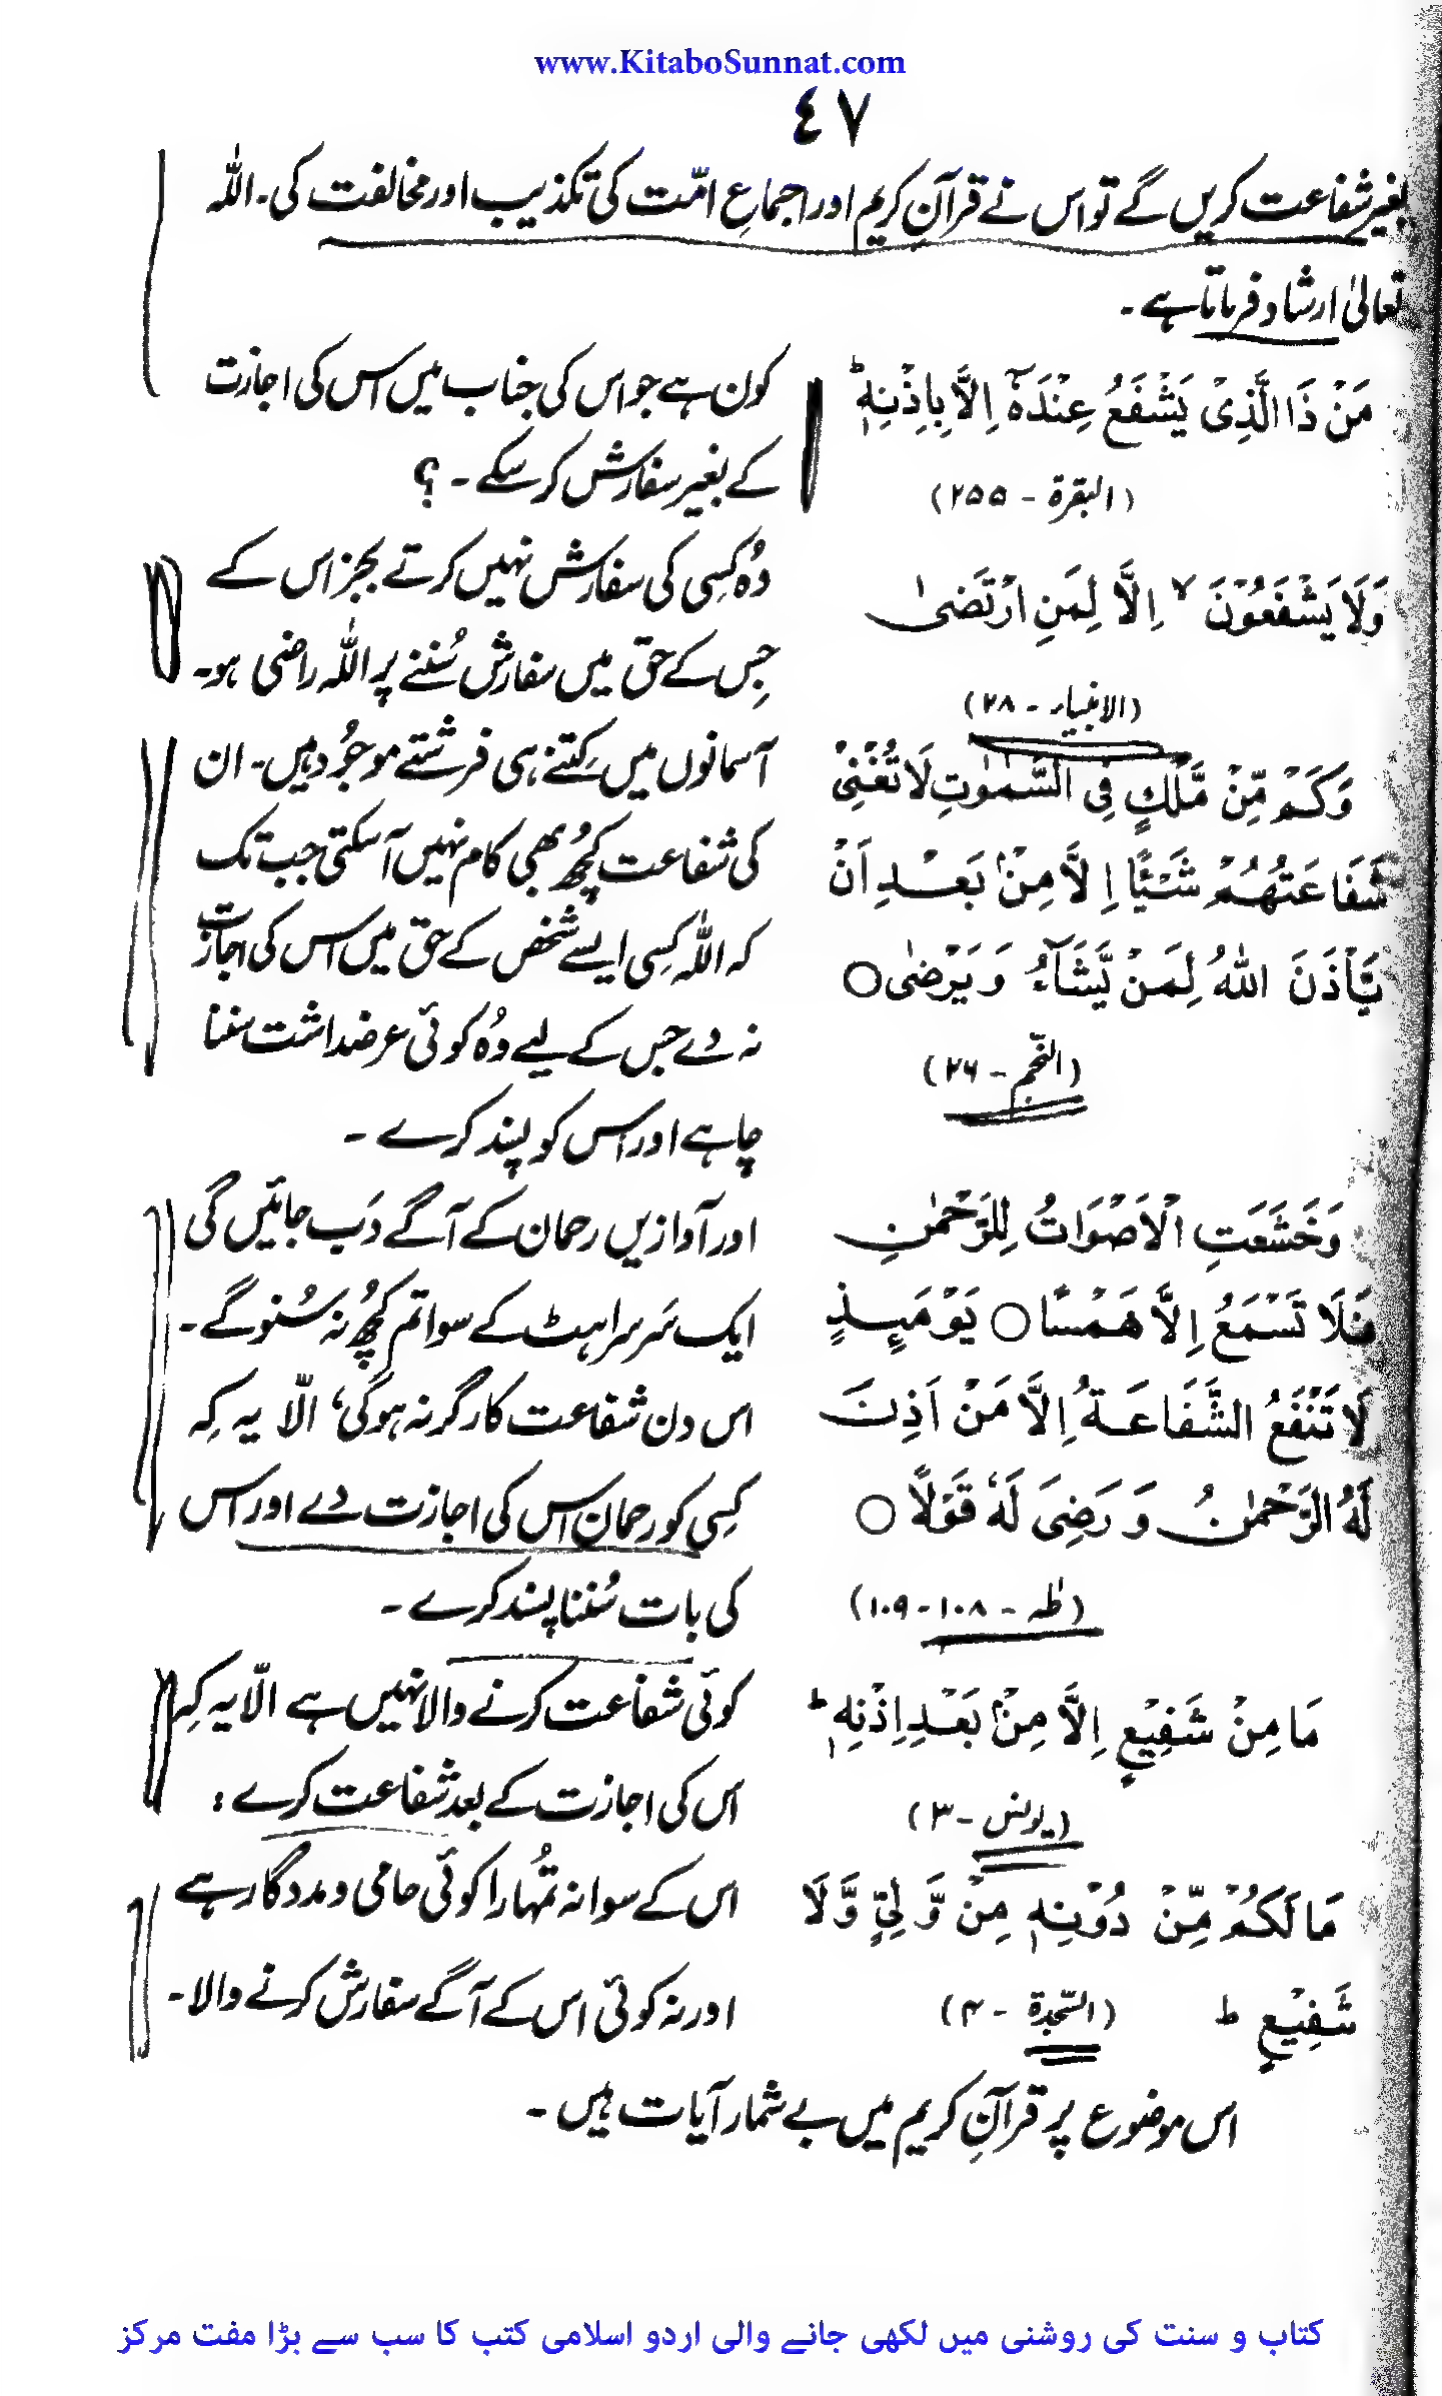 www.KitaboSunnat.com
٤٧
بغیر شفاعت کریں گے تو اس نے قرآنِ کریم اور اجماعِ امّت کی تکذیب اور مخالفت کی۔ اللہ
تعالیٰ ارشاد فرماتا ہے۔
مَنْ ذَا الَّذِیْ یَشْفَعُ عِنْدَہٗٓ اِلَّا بِاِذْنِہٖ ؕ
(البقرۃ - ۲۵۵)
کون ہے جو اس کی جناب میں اس کی اجازت
کے بغیر سفارش کر سکے - ؟
وَلَا یَشْفَعُوْنَ ۙ اِلَّا لِمَنِ ارْتَضٰی
(الانبیاء - ۲۸)
وُہ کِسی کی سفارش نہیں کرتے بجز اس کے
جِس کے حق میں سفارش سُننے پر اللہ راضی ہو۔
وَکَمْ مِّنْ مَّلَکٍ فِی السَّمٰوٰتِ لَا تُغْنِیْ
شَفَاعَتُهُمْ شَیْئًا اِلَّا مِنْۢ بَعْدِ اَنْ
یَّاْذَنَ اللّٰہُ لِمَنْ یَّشَآءُ وَ یَرْضٰی ○
(النّجم - ۲۶)
آسمانوں میں کِتنے ہی فرشتے موجُود ہیں۔ ان
کی شفاعت کچُھ بھی کام نہیں آ سکتی جب تک
کہ اللہ کِسی ایسے شخص کے حق میں اس کی اجازت
نہ دے جس کے لیے وُہ کوئی عرضداشت سننا
چاہے اور اس کو پسند کرے -
وَخَشَعَتِ الْاَصْوَاتُ لِلرَّحْمٰنِ
فَلَا تَسْمَعُ اِلَّا هَمْسًا ○ یَوْمَىِٕذٍ
لَا تَنْفَعُ الشَّفَاعَةُ اِلَّا مَنْ اَذِنَ
لَهُ الرَّحْمٰنُ وَ رَضِیَ لَهٗ قَوْلًا ○
(طٰہٰ - ۱۰۸ - ۱۰۹)
اور آوازیں رحمان کے آگے دَب جائیں گی
ایک سَرسراہٹ کے سوا تم کچُھ نہ سُنو گے۔
اس دن شفاعت کارگر نہ ہوگی، الّا یہ کِہ
کِسی کو رحمان اس کی اجازت دے اور اس
کی بات سُننا پسند کرے -
مَا مِنْ شَفِیْعٍ اِلَّا مِنْۢ بَعْدِ اِذْنِہٖ ؕ
(یونس - ۳)
کوئی شفاعت کرنے والا نہیں ہے الّا یہ کِہ
اس کی اجازت کے بعد شفاعت کرے :
مَا لَکُمْ مِّنْ دُوْنِہٖ مِنْ وَّلِیٍّ وَّلَا
شَفِیْعٍ ط (السّجدۃ - ۴)
اس کے سوا نہ تمُہارا کوئی حامی و مددگار ہے
اور نہ کوئی اس کے آگے سفارش کرنے والا۔
اس موضوع پر قرآنِ کریم میں بے شمار آیات ہیں -
کتاب و سنت کی روشنی میں لکھی جانے والی اردو اسلامی کتب کا سب سے بڑا مفت مرکز